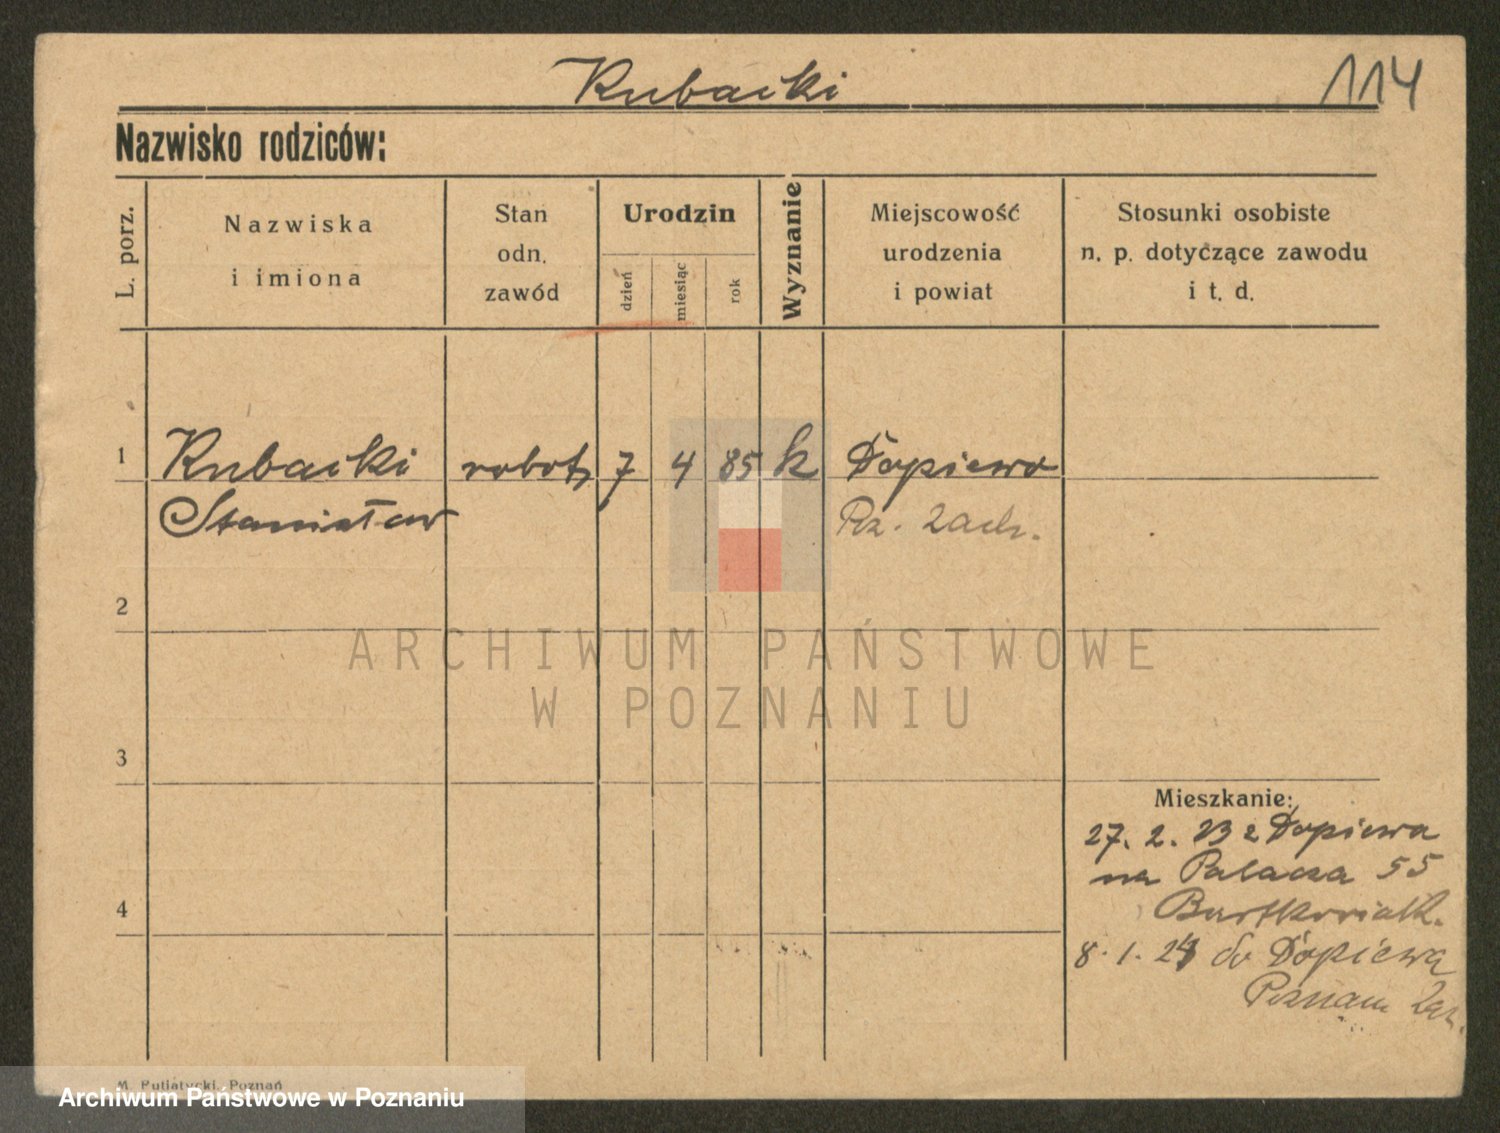 Rubacki
114
Nazwisko rodziców:
L. porz.
Nazwiska
i imiona
Stan
odn.
zawód
Urodzin
dzień
miesiąc
rok
Wyznanie
Miejscowość
urodzenia
i powiat
Stosunki osobiste
n. p. dotyczące zawodu
i t. d.
1 Rubacki robotn 7 4 85 k Dopiewo
Stanisław Poz. Zach.
2
ARCHIWUM PAŃSTWOWE
W POZNANIU
3
Mieszkanie:
27. 2. 23 z Dopiewa
na Palacza 55
4
8. 1. 24 do Dopiewa
Poznań Zach.
M. Putiatycki, Poznań
Archiwum Państwowe w Poznaniu